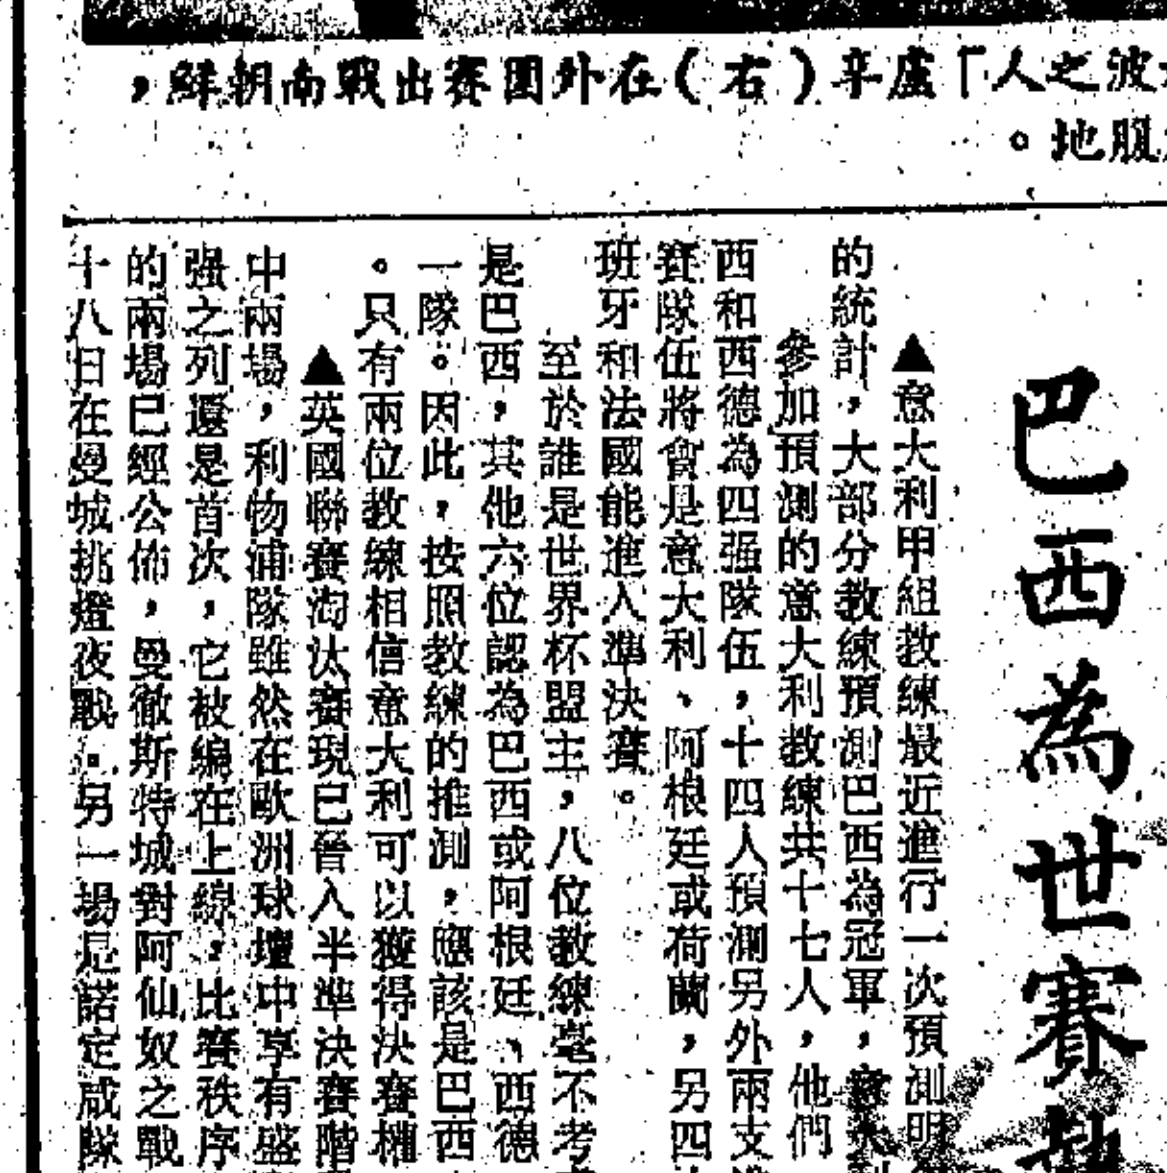 人之波
「盧辛（右）在外圍賽出戰南朝鮮，
腹地。
巴西為世賽
▲意大利甲組教練最近進行一次預測明
的統計，大部分教練預測巴西為冠軍，
參加預測的意大利教練共十七人，他們
西和西德為四强隊伍，十四人預測另外兩支
賽隊伍將會是意大利、阿根廷或荷蘭，另四
班牙和法國能進入準決賽。
至於誰是世界杯盟主，八位教練毫不考
是巴西，其他六位認為巴西或阿根廷、西德
一隊。因此，按照教練的推測，應該是巴西
。只有兩位教練相信意大利可以獲得決賽權
▲英國聯賽淘汰賽現已晉入半準決賽階
中兩場，利物浦隊雖然在歐洲球壇中享有盛
强之列還是首次，它被編在上線，比賽秩序
的兩場已經公佈，曼徹斯特城對阿仙奴之戰
十八日在曼城挑燈夜戰。另一場是諾定咸隊